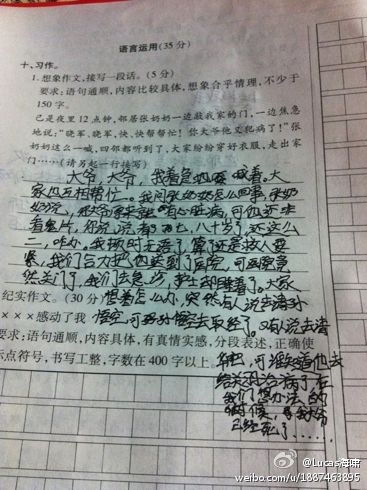 语言运用(35分)
十、习作。
1.想象作文,接写一段话。(5分)
要求:语句通顺,内容比较具体,想象合乎情理,不少于
150字。
已是夜里12点钟,邻居张奶奶一边敲我家的门,一边焦急
地说:“晓军,晓军,快,快帮帮忙!你大爷他又犯病了!”张
奶奶这么一喊,四邻都听到了,大家纷纷穿好衣服,走出家
门……(请另起一行接写)
大爷,大爷,我着急地喊着,大
家也互相帮忙。我问张奶奶怎么回事,张奶
奶说,你大爷本来就有心脏病,可他还要
看鬼片,你说说,都七八十岁了,还这么
二,咋办。我顿时无语了,算了还是救人要
紧,我们合力把他送到了医院,可医院竟
然关门了,我们去急诊,护士却睡着了。大家
纪实作文。(30分)想着怎么办,突然有人说去请孙
×××感动了我 悟空,可孙悟空去取经了。又有人说去请
要求:语句通顺,内容具体,有真情实感,分段表述,正确使
示点符号,书写工整,字数在400字上。
华佗,可谁知道他去
给关羽治病了。在
我们想办法的
时候,大爷
已经死了……
@Lucas海啸
weibo.com/u/1887463895